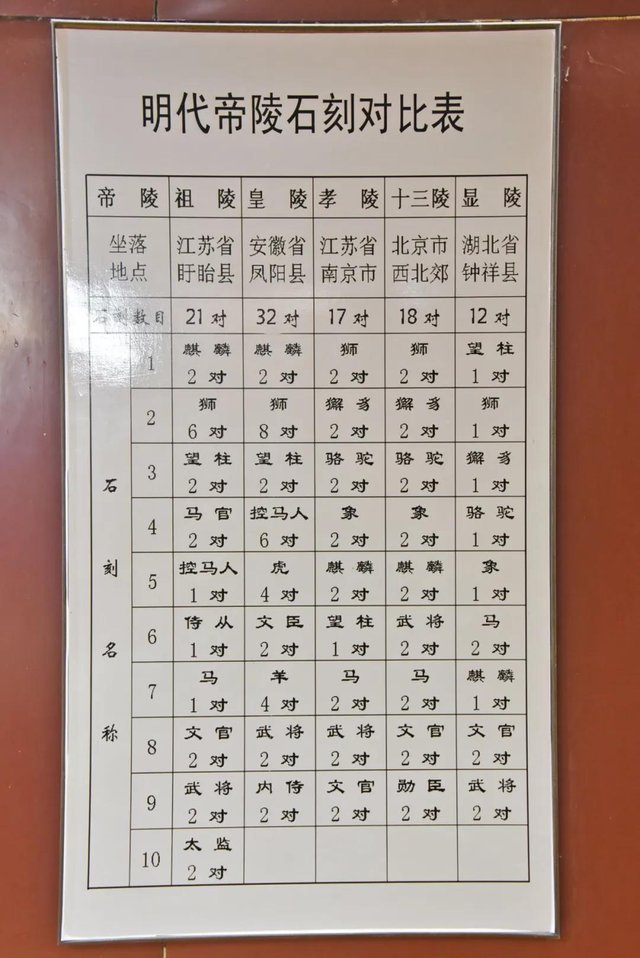 明代帝陵石刻对比表
帝 陵 祖 陵 皇 陵 孝 陵 十三陵 显 陵
坐落地点 江苏省盱眙县 安徽省凤阳县 江苏省南京市 北京市西北郊 湖北省钟祥县
石刻数目 21对 32对 17对 18对 12对
石刻名称
1 麒麟2对 麒麟2对 狮2对 狮2对 望柱1对
2 狮6对 狮8对 獬豸2对 獬豸2对 狮1对
3 望柱2对 望柱2对 骆驼2对 骆驼2对 獬豸1对
4 马官2对 控马人6对 象2对 象2对 骆驼1对
5 控马人1对 虎4对 麒麟2对 麒麟2对 象1对
6 侍从1对 文臣2对 望柱1对 武将2对 马2对
7 马1对 羊4对 马2对 马2对 麒麟1对
8 文官2对 武将2对 武将2对 文官2对 文官2对
9 武将2对 内侍2对 文官2对 勋臣2对 武将2对
10 太监2对